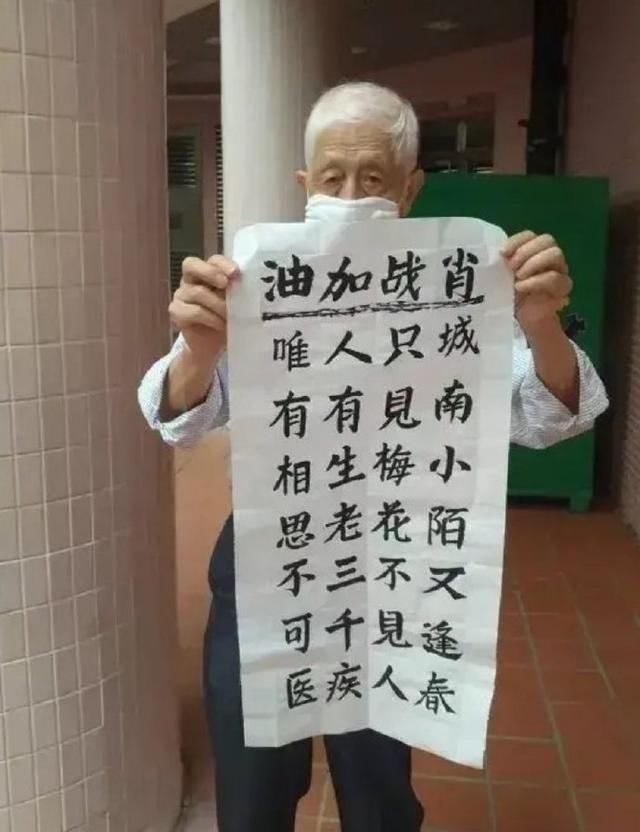 肖战加油
城南小陌又逢春
只見梅花不見人
人有生老三千疾
唯有相思不可医